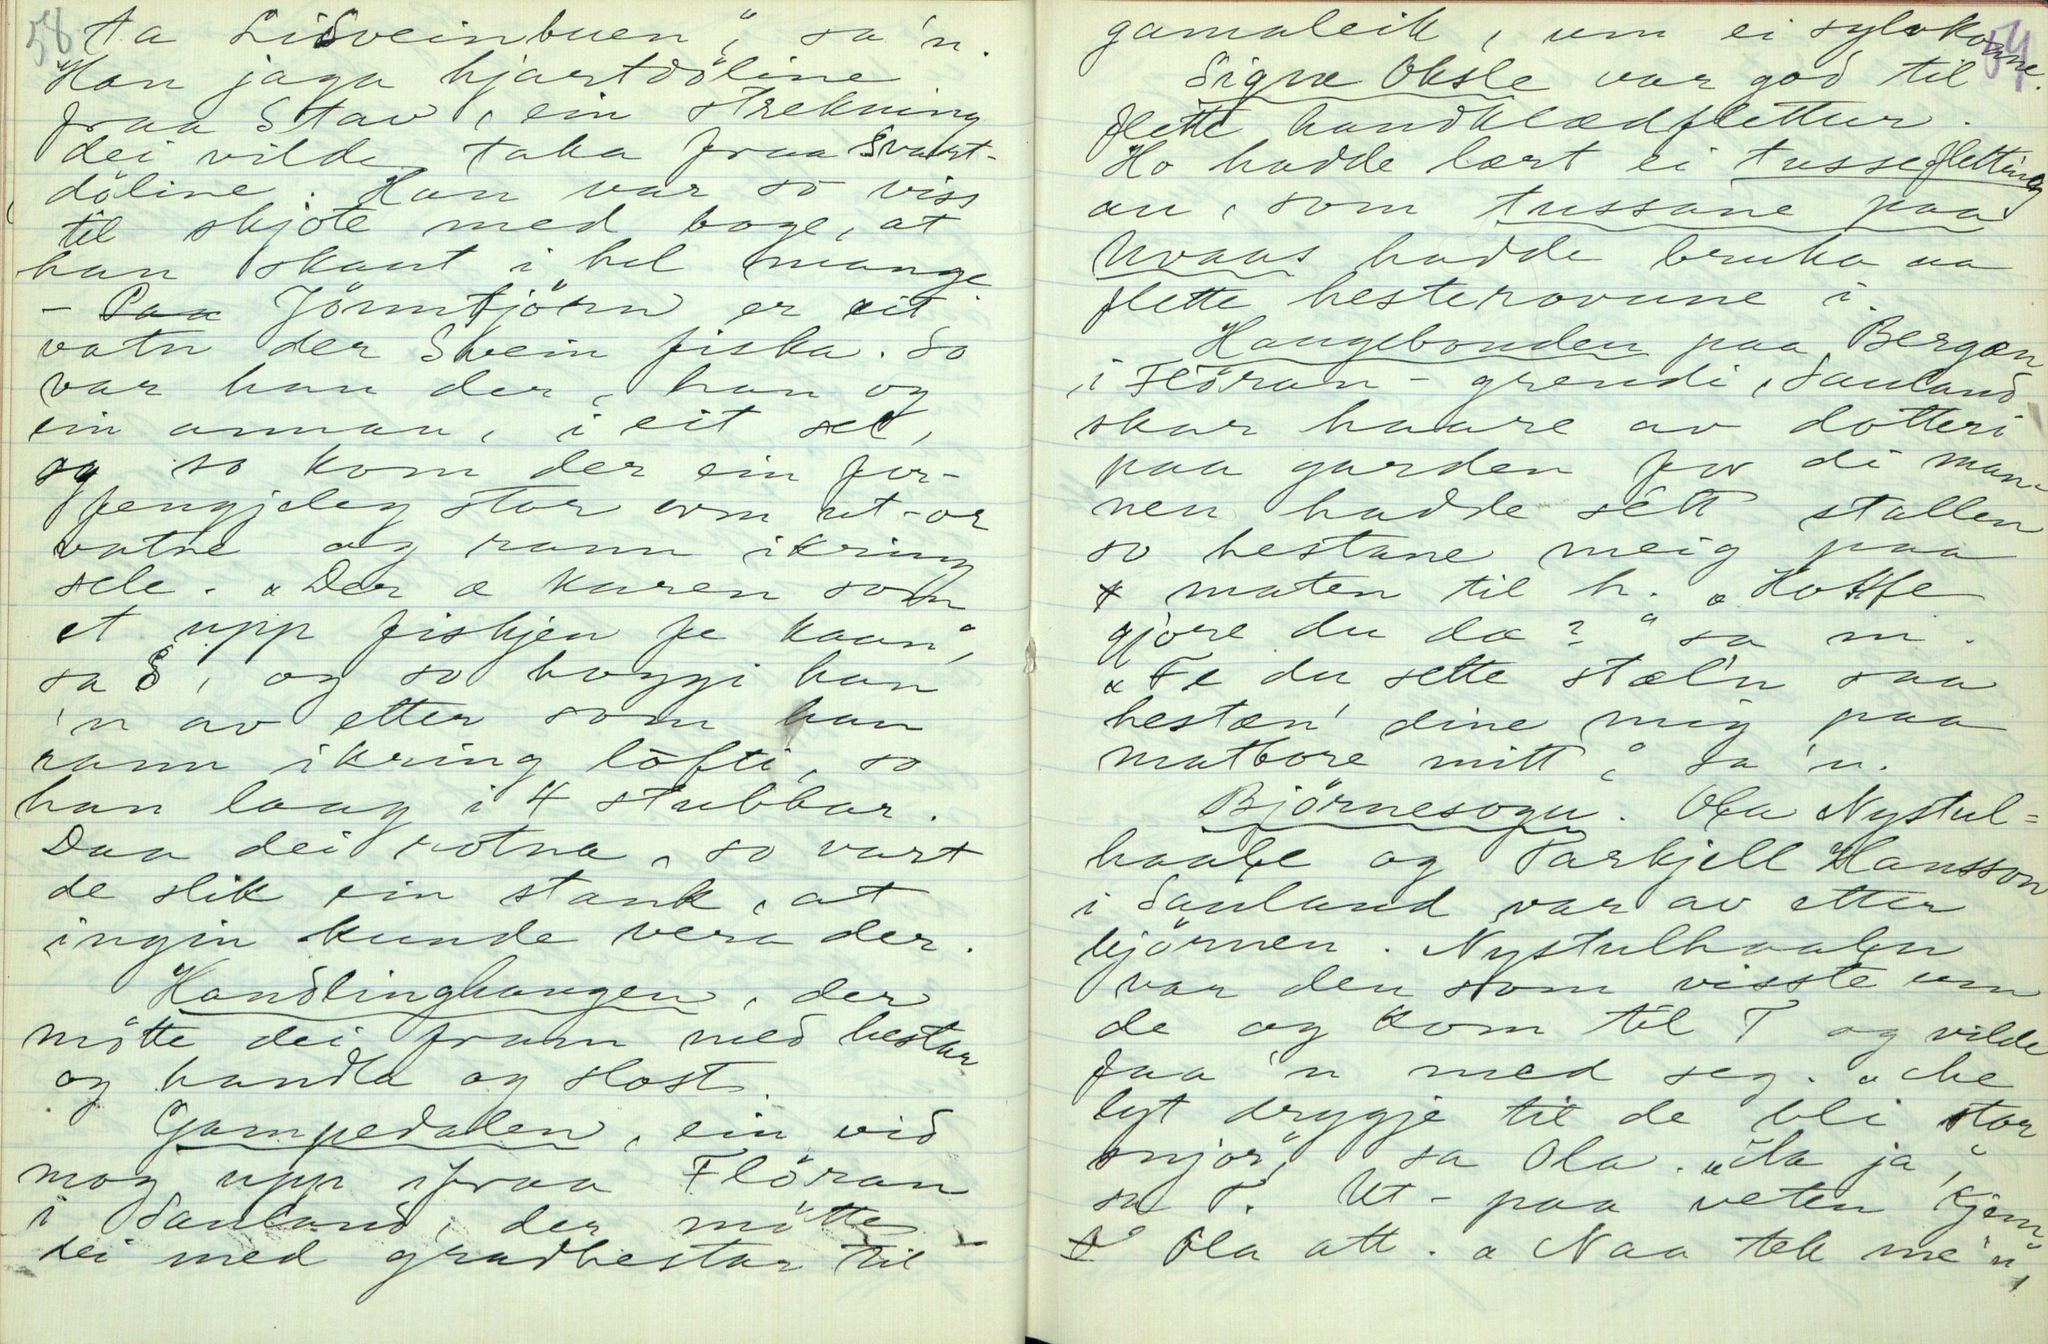 58
ta LiSveinbuen", sa 'n.
Han jaga hjartdöline
fraa Stav, ein strekning
dei vilde taka fraa Svart-
döline. Han var so viss
til skjote med boge, at
han skaut i hel mange
- Paa Jörnntjörn er eit
vatn der Svein fiska. So
var han der, han og
ein annan, i eit sel,
og so kom der ein for-
fengjeleg stor orm ut-or
vatne og rann ikring
sele. "Der æ karen som
et upp fiskjen fe kaan",
sa S, og so hoggi han
'n av etter som han
rann ikring löfti, so
han laag i 4 stubbar.
Daa dei rotna, so vart
de slik ein stank, at
ingin kunde vera der.
Handlinghaugen, der
mötte dei fram med hestar
og handla og slost.
Gampedalen, ein vid
mog upp ifraa Flöran
i Sauland, der mötte
dei med gradhestar til
59
gamaleik, um ei sylvkanne.
Signe Oksle var god til
flette handklædflettur.
Ho hadde lært ei tussefletting
au, som tussane paa
Uvaas hadde bruka aa
flette hesterovune i.
Haugebonden paa Bergan
i Flöran-grendi, Sauland
skar haare av dotteri
paa garden for di man-
nen hadde sett stallen
so hestane meig paa
maten til h. "Hoffe
gjore du da?" sa m.
"Fe du sette stæl'n saa
hestæn' dine mig paa
matbore mitt", sa 'n.
Björnesogu. Ola Nystul=
haale og Tarkjell Hansson
i Sauland var av etter
björnen. Nystulhaalen
var den som visste um
de og kom til T og vilde
faa 'n med seg. "Me
lyt drygje til de bli stor
snjor", sa Ola. "Aa ja",
sa T. Ut-paa veten kjem
Ola att. "Naa tek me 'n",